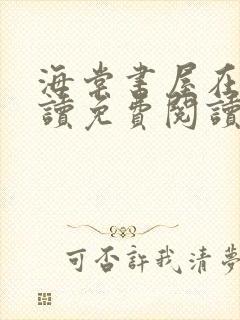 海棠書屋在
讀免費閱讀
可否許我清夢